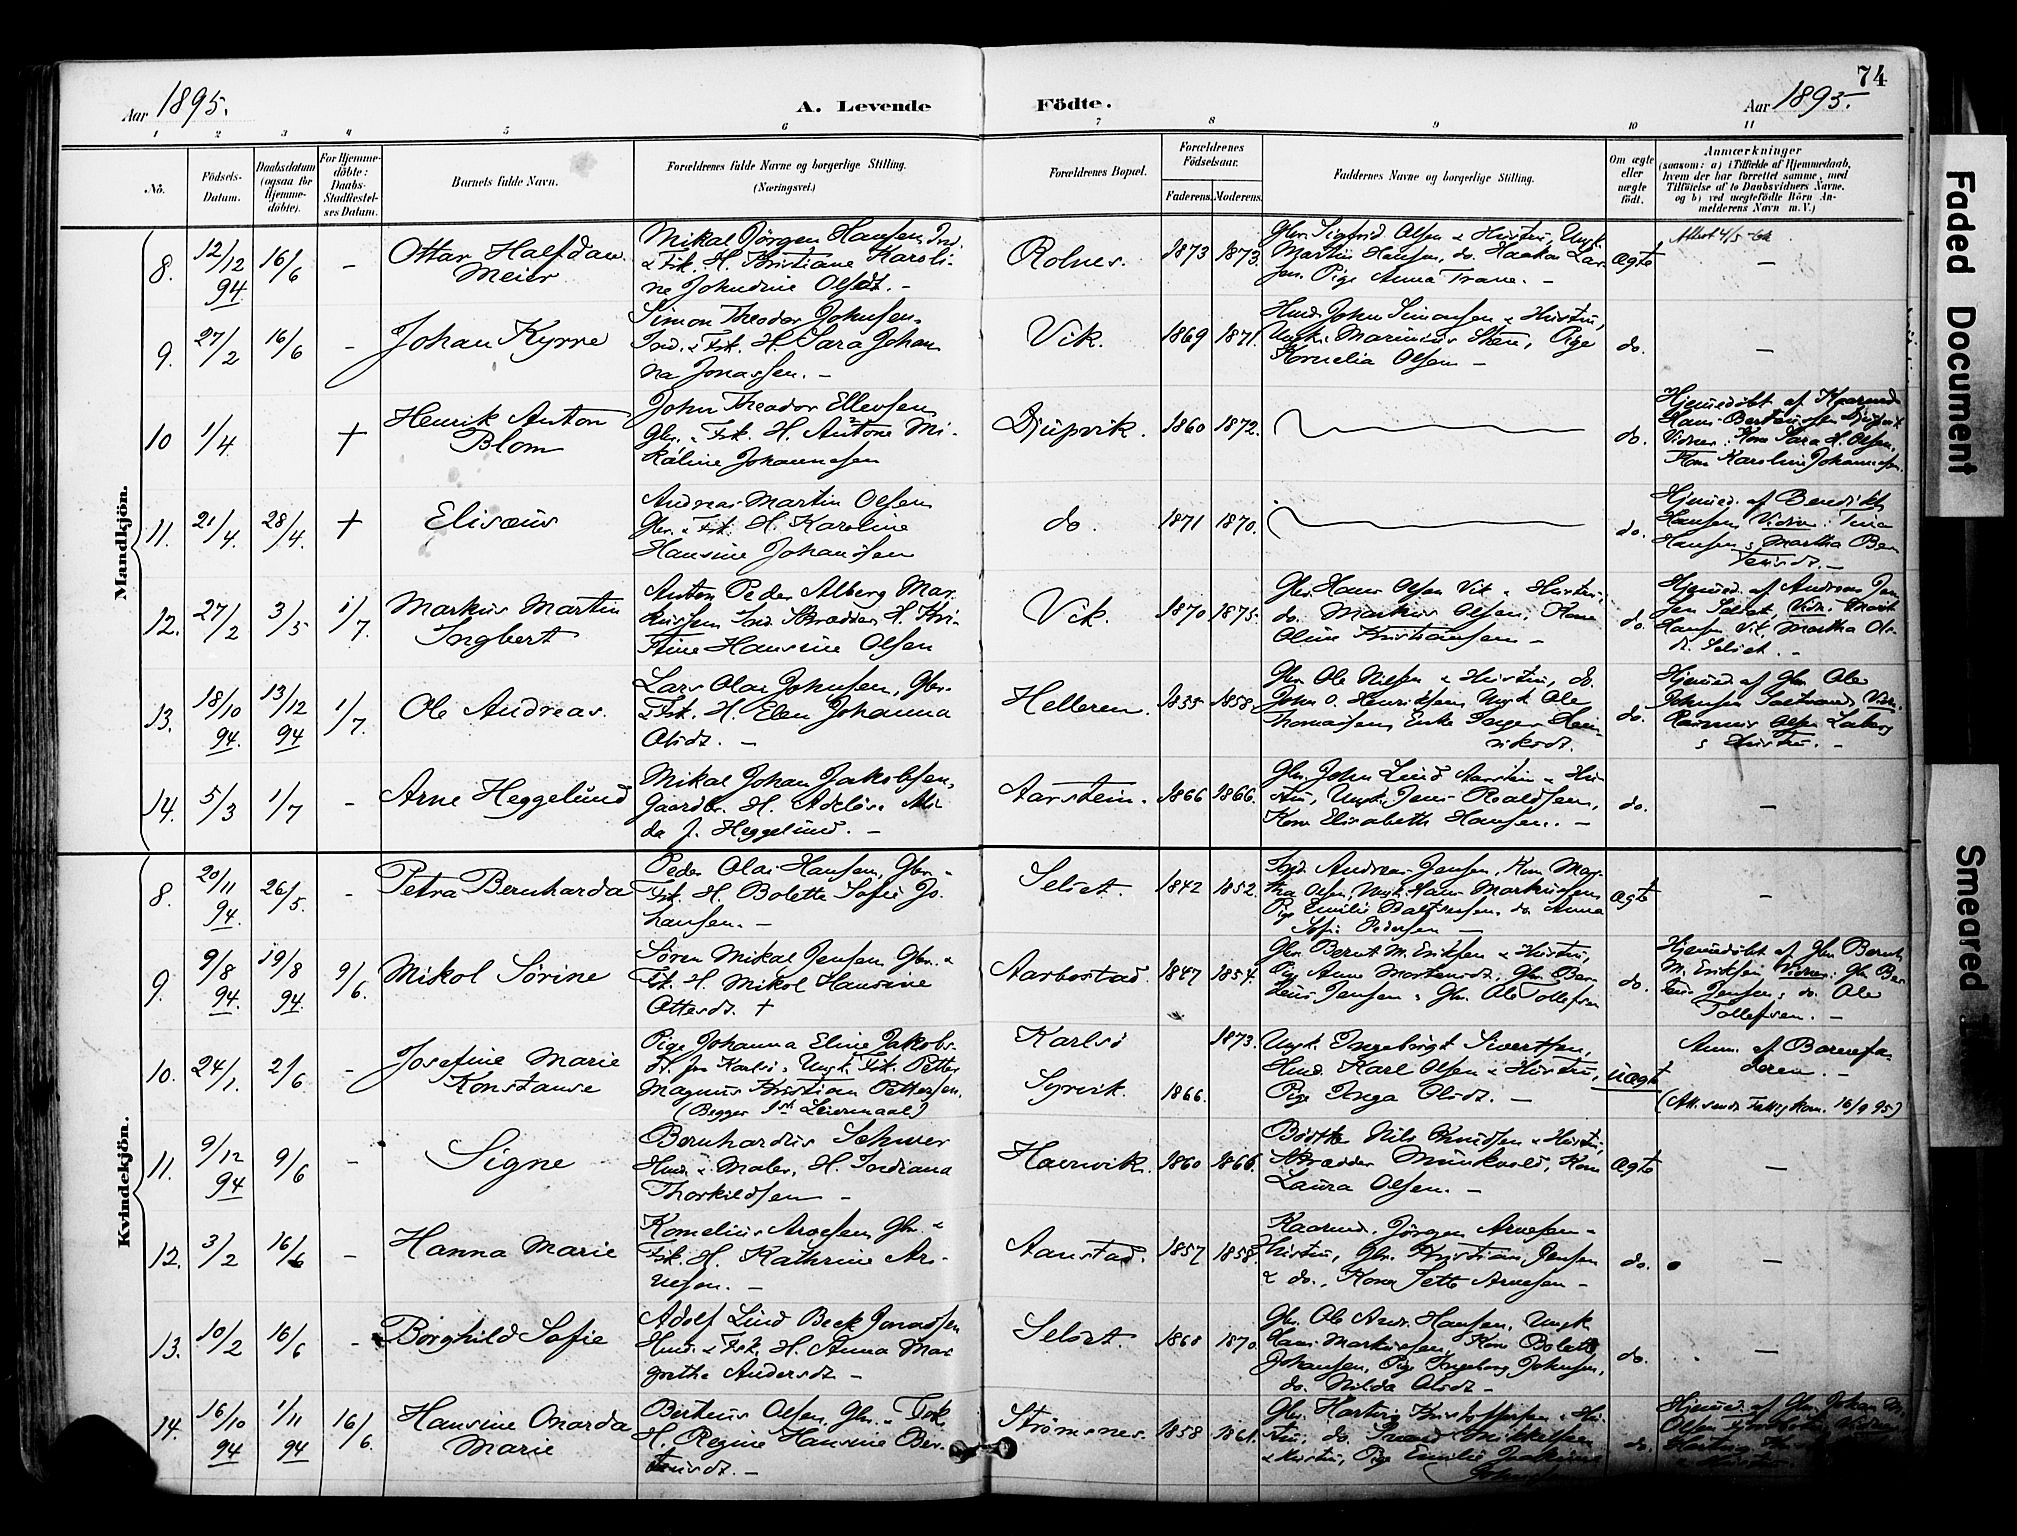 74
Aar 1895.
A. Levende
Födte.
Aar 1895.
1 2 3 4 5 6 7 8 9 10 11
Nö.
Födsels-
Datum.
Daabsdatum
(ogsaa for
Hjemme-
döbte).
For Hjemme-
döbte:
Daabs-
Stadfæstel-
ses Datum.
Barnets fulde Navn.
Forældrenes fulde Navne og borgerlige Stilling.
(Næringsvei.)
Forældrenes Bopæl.
Forældrenes
Födselsaar.
Faderens.
Moderens.
Faddernes Navne og borgerlige Stilling.
Om ægte
eller
uægte
födt.
Anmærkninger
(saasom: a) i Tilfælde af Hjemmedaab,
hvem der har forrettet samme, med
Tilföielse af to Daabsvidners Navne,
og b) ved uægtefödte Börn An-
melderens Navn m. V.)
Mandkjön.
8. 12/12 94 16/6 -
Ottar Halfdan
Meier
Mikal Jörgen Hansen, Ind.
& Fisk. H. Kristiane Karoli-
ne Johndine Olsdt. -
Rolnes. 1873 1873.
Gbr. Sigfrid Olsen & Hustru, Ungk.
Martin Hansen, do. Haakon Lar-
sen. Pige Anna Trane. -
ægte
-
9. 27/2 16/6 -
Johan Kyrre
Simon Theodor Johnsen,
Ind. & Fisk. H. Sara Johan
na Jonassen. -
Vik. 1869 1871.
Husm. John Simonsen & Hustru,
Ungk. Marinius Steen, Pige
Kornelia Olsen -
do.
-
10 1/4 +
Henrik Anton
Blom
John Theodor Ellevsen
Gbr. & Fisk. H. Antone Mi-
kaline Johannesen
Djupvik. 1860 1872.
do.
Hjemmedöbt af Kaarmd.
Hans Berteussen Djupvik
Vidner: Kone Sara H. Olsen,
Kone Karoline Johannesen.
11. 21/4. 28/4. +
Elisæus
Andreas Martin Olsen
Gbr. & Fisk. H. Karoline
Hansine Johansen
do. 1871 1870.
do.
Hjemmed. af Benedikt
Hansen, Vidner:
Hansen & Martha Ber
teusdt. -
12. 27/2 3/5 1/7.
Markus Martin
Ingbert
Anton Peder Alberg Mar-
kussen Ind. Skrædder H. Kri-
stine Hansine Olsen
Vik. 1870 1875.
Gbr. Hans Olsen Vik & Hustru,
do. Markus Olsen, Kone
Oline Kristiansen -
do.
Hjemmed. af Andreas Jen
sen Selset. Vidn.
Hansen Vik, Martha Ols-
dt. Selset. -
13. 18/10 94. 13/12 94 1/7.
Ole Andreas.
Lars Olai Johnsen, Gbr.
& Fisk. H. Elen Johanna
Olsdt. -
Helleren. 1855 1858.
Gbr. Ole Nilsen & Hustru, do.
John O. Henriksen, Ungk. Ole
Thomassen, Enke Inger Hen-
riksdt.
do.
Hjemmed. af Gbr. Ole
Johnsen Sætrand, Vidn.
Rasmus Olsen Laberg
& Hustru. -
14. 5/3 1/7 -
Arne Heggelund
Mikal Johan Jakobsen,
Gaardbr. H. Adelöse Ali-
da J. Heggelund. -
Aarstein. 1866 1866.
Gbr. John Lind Aarstein & Hu-
stru, Ungk. Jens Roaldsen,
Kone Elisabeth Hansen. -
do.
-
Kvindekjön.
8. 20/11 94. 26/5. -
Petra Bernharda
Peder Olai Hansen, Gbr. &
Fisk. H. Bolette Sofie Jo-
hansen. -
Selset. 1842 1852.
Ind. Andreas Jensen, Kone Mar-
tha Olsen, Ungk. Hans Markussen
Pige Emilie Baltsersen, do. Anna
Sofie Pedersen -
ægte
-
9. 9/8 94. 19/8 94. 9/6.
Mikol Sörine
Sören Mikal Jensen, Gbr. &
Fisk. H. Mikol Hansine
Ottersdt. +
Aarbostad. 1847 1854.
Gbr. Bernt M. Eriksen & Hustru,
Pige Anne Mortensdt. Gbr. Ber
teus Jensen & Gbr. Ole Tollefsen
do.
Hjemmedöbt af Gbr. Bernt
M. Eriksen, Vidner: Gbr. Ber
teus Jensen & do. Ole
Tollefsen. -
10. 24/1. 2/6 -
Josefine Marie
Konstanse
Pige Johanna Eline Jakobs-
dt. fra Karlsö & Ungk. Fisk. Petter
Magnus Kristian Pettersen.
(Begges 1ste Leiermaal)
Karlsö 1873.
Syrvik. 1866.
Ungk. Ingebrigt Sivertsen,
Husm. Karl Olsen & Hustru,
Pige Inga Olsdt. -
uægte
Anm. af Barnefa-
deren. -
(Att. sendt Fattigkom. 16/9 95)
11. 9/12 94 9/6 -
Signe
Bernhardus Schver
Husm. & Maler, H. Jordiana
Thorkildsen -
Havnvik. 1860 1866.
Bödtker Nils Knudsen & Hustru,
Skrædder Munkvold, Kone
Laura Olsen. -
ægte
-
12. 3/2 16/6 -
Hanna Marie
Kornelius Arnesen Gbr. &
Fisk. H. Kathrine Ar-
nesen. -
Aanstad. 1857 1858.
Kaarmd. Jörgen Arnesen &
Hustru, Gbr. Kristian Jensen
& do., Kone Jette Arnesen -
do.
-
13. 10/2 16/6 -
Borghild Sofie
Adolf Lind Beck Jonassen
Husm. & Fisk. H. Anna Mar
grethe Andersdt. -
Selset. 1868 1870.
Gbr. Ole Andr. Hansen, Ungk.
Hans Markussen, Kone Bolette
Johansen, Pige Ingeborg Johnsen,
do. Nilda Olsdt. -
do.
-
14. 16/10 94 1/11 94 16/6.
Hansine Onarda
Marie
Berteus Olsen Gbr. & Fisk.
H. Regine Hansine Ber-
teusdt. -
Strömsnes. 1858 1861.
Gbr. Harting Kristoffersen & Hu-
stru, do. Mikkelsen
& Hustru, Pige Emilie
do.
Hjemmed. af Gbr. Johan M.
Olsen
& Hustru.
Faded Document
Smeared